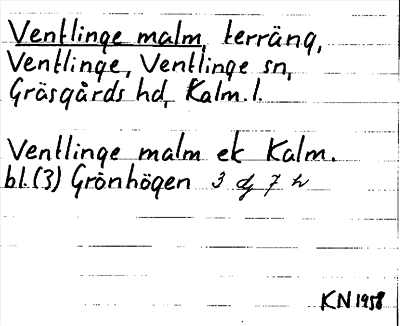 Ventlinge malm, terräng,
Ventlinge, Ventlinge sn,
Gräsgårds hd, Kalm. l.
Ventlinge malm ek Kalm.
bl. (3) Grönhögen 3 dj 7 h
KN 1958